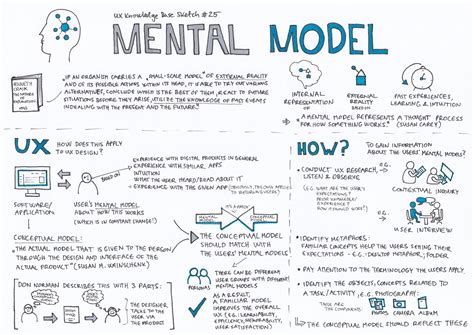 UX Knowledge Base Sketch #25
MENTAL MODEL
KENNETH
CRAIK:
THE NATURE
OF
EXPLANATION
1943
"IF AN ORGANISM CARRIES A „SMALL-SCALE MODEL" OF EXTERNAL REALITY
AND OF ITS POSSIBLE ACTIONS WITHIN ITS HEAD, IT IS ABLE TO TRY OUT VARIOUS
ALTERNATIVES, CONCLUDE WHICH IS THE BEST OF THEM, REACT TO FUTURE
SITUATIONS BEFORE THEY ARISE, UTILIZE THE KNOWLEDGE OF PAST EVENTS
IN DEALING WITH THE PRESENT AND THE FUTURE."
INTERNAL
REPRESENTATION
OF
EXTERNAL
REALITY
BASED ON
PAST EXPERIENCES,
LEARNING & INTUITION
"A MENTAL MODEL REPRESENTS A THOUGHT PROCESS
FOR HOW SOMETHING WORKS." (SUSAN CAREY)
UX
HOW DOES THIS APPLY
TO UX DESIGN?
SOFTWARE/
APPLICATION
USER'S MENTAL MODEL
ABOUT HOW THIS WORKS
(WHICH IS IN CONSTANT CHANGE!)
BASED ON
EXPERIENCE WITH DIGITAL PRODUCTS IN GENERAL
EXPERIENCE WITH SIMILAR APPS
INTUITION
WHAT THE USER HEARD/READ ABOUT IT
EXPERIENCE WITH THE GIVEN APP
CONCEPTUAL MODEL:
"THE ACTUAL MODEL THAT IS GIVEN TO THE PERSON
THROUGH THE DESIGN AND INTERFACE OF THE
ACTUAL PRODUCT" (SUSAN M. WEINSCHENK)
DON NORMAN DESCRIBES THIS WITH 3 PARTS:
THE DESIGNER
TALKS TO
THE USER
VIA THE
PRODUCT
MENTAL
MODEL
CONCEPTUAL
MODEL
THE CONCEPTUAL MODEL
SHOULD MATCH WITH
THE USERS' MENTAL MODELS!
PERSONAS
THERE CAN BE DIFFERENT
USER GROUPS WITH DIFFERENT
MENTAL MODELS
AS A RESULT,
A FAMILIAR MODEL
IMPROVES THE OVERALL
UX (E.G. LEARNABILITY,
EFFICIENCY, MEMORABILITY,
USER SATISFACTION)
HOW?
TO GAIN INFORMATION
ABOUT THE USERS' MENTAL MODELS?
• CONDUCT UX RESEARCH,
LISTEN & OBSERVE
(E.G. WHAT ARE THE USERS'
EXPECTATIONS?
PRIOR KNOWLEDGE/
EXPERIENCE?
HOW DO THEY
E.G.
CONTEXTUAL INQUIRY
USER INTERVIEW
• IDENTIFY METAPHORS:
FAMILIAR CONCEPTS HELP THE USERS SETTING THEIR
EXPECTATIONS - E.G. DESKTOP METAPHOR, FOLDER
• PAY ATTENTION TO THE TERMINOLOGY THE USERS APPLY
• IDENTIFY THE OBJECTS, CONCEPTS RELATED TO
A TASK/ACTIVITY, E.G. PHOTOGRAPHY:
THESE ARE
THE
COMPONENTS
PHOTOS
CAMERA
ALBUM
• THE CONCEPTUAL MODEL SHOULD REFLECT THESE